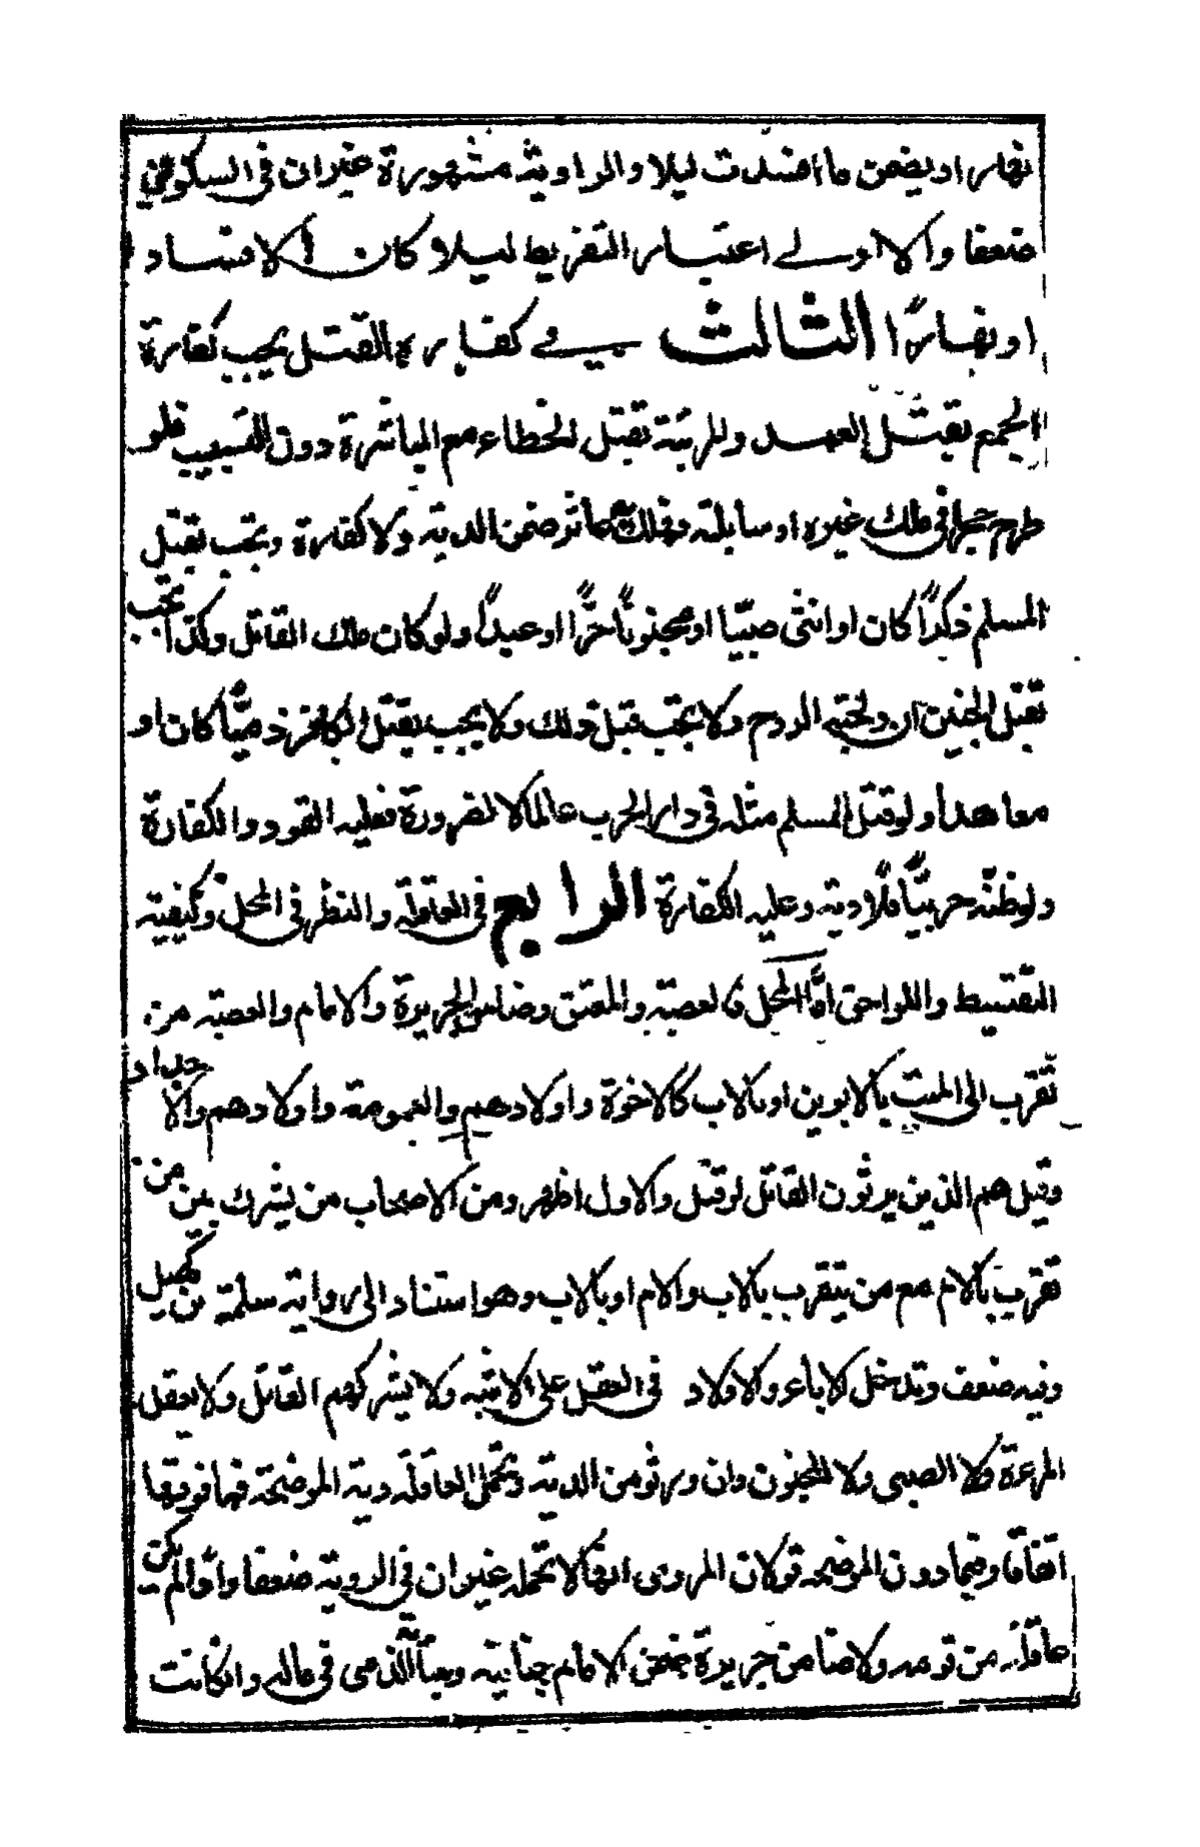 نهارا ويضمن ما افسدت ليلا والرواية مشهورة غير ان في السكوني
ضعفا والاولى اعتبار التفريط ليلا كان الافساد
او نهارًا الثالث في كفارة القتل يجب كفارة
الجمع بقتل العمد والمرتبة بقتل الخطاء مع المباشرة دون التسبيب فلو
طرح حجرا في ملك غيره او سابلة فهلك بها عاثر ضمن الدية ولا كفارة ويجب بقتل
المسلم ذكرًا كان او انثى صبيّا او مجنونًا حرًّا او عبدًا ولو كان ملك القاتل وكذا تجب
بقتل الجنين ان ولجته الروح ولا يجب قبل ذلك ولا يجب بقتل الكافر ذميًّا كان او
معاهدا ولو قتل المسلم مثله في دار الحرب عالما لا لضرورة فعليه القود والكفارة
ولو ظنّه حربيًّا فلا دية وعليه الكفارة الرابع في العاقلة والنظر في المحل وكيفية
التقسيط واللواحق امّا المحل فالعصبة والمعتق وضامن الجريرة والامام والعصبة من
تقرب الى الميت بالابوين او بالاب كالاخوة واولادهم والعمومة واولادهم والاجداد
وقيل هم الذين يرثون القاتل لو قتل والاول اظهر ومن الاصحاب من يشرك بين من
تقرب بالام مع من يتقرب بالاب والام او بالاب وهو استناد الى رواية سلمة بن كهيل
وفيه ضعف وتدخل الاباء والاولاد في العقل على الاشبه ولا يشركهم القاتل ولا يعقل
المرءة ولا الصبي ولا المجنون وان ورثو من الدية وتحمل العاقلة دية الموضحة فما فوقها
اتفاقا وفيما دون الموضحة قولان المروي انها لا تحمله غير ان في الرواية ضعفا واذا لم يكن
عاقلة من قومه ولا ضامن جريرة ضمن الامام جنايته وجناية الذمي في ماله وان كانت